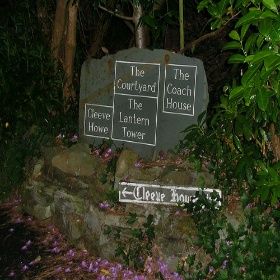 The
Courtyard
The
Coach
House
Cleeve
Howe
The
Lantern
Tower
Cleeve House